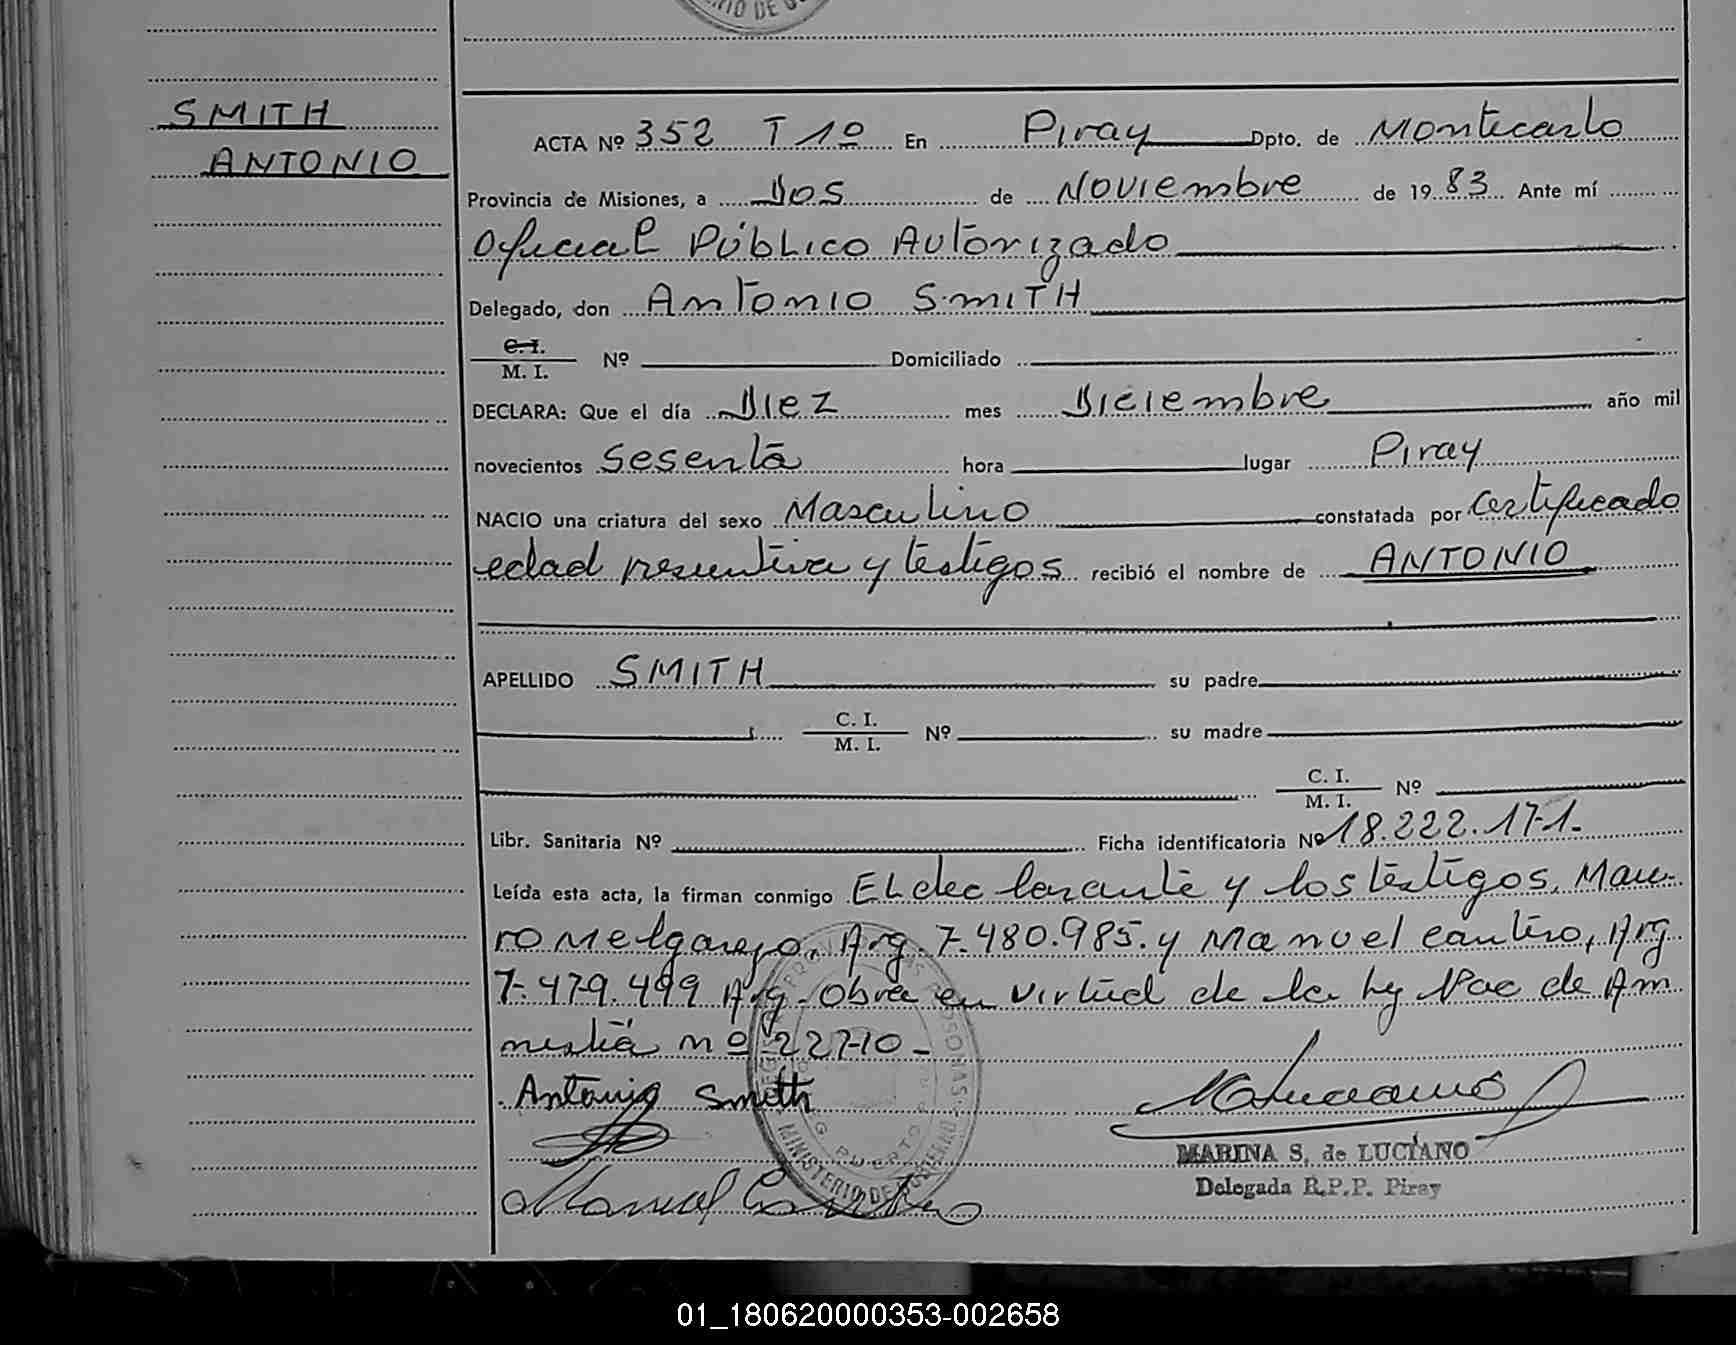 RIO DE GO
SMITH
ANTONIO
ACTA Nº 352 T 1º En Piray Dpto. de Montecarlo
Provincia de Misiones, a Dos de Noviembre de 1983 Ante mí
Oficial Público Autorizado
Delegado, don Antonio SMITH
C. I.
M. I. Nº Domiciliado
DECLARA: Que el día Diez mes Diciembre año mil
novecientos Sesenta hora lugar Piray
NACIO una criatura del sexo Masculino constatada por Certificado
edad presuntiva y testigos recibió el nombre de ANTONIO
APELLIDO SMITH su padre
C. I.
M. I. Nº su madre
C. I.
M. I. Nº
Libr. Sanitaria Nº Ficha identificatoria Nº 18.222.171.
Leída esta acta, la firman conmigo El declarante y los testigos. Mau-
ro Melgarejo, Arg. 7.480.985. y Manuel Cantero, Arg
7.479.499 Arg. Obra en virtud de la ley Nac de Am
nistia nº 22710 -
Antonio Smith
MARINA S. de LUCIANO
Delegada R.P.P. Piray
Manuel Cantero
MINISTERIO DE GOBIERNO
PERSONAS
PUERTO
01_180620000353-002658